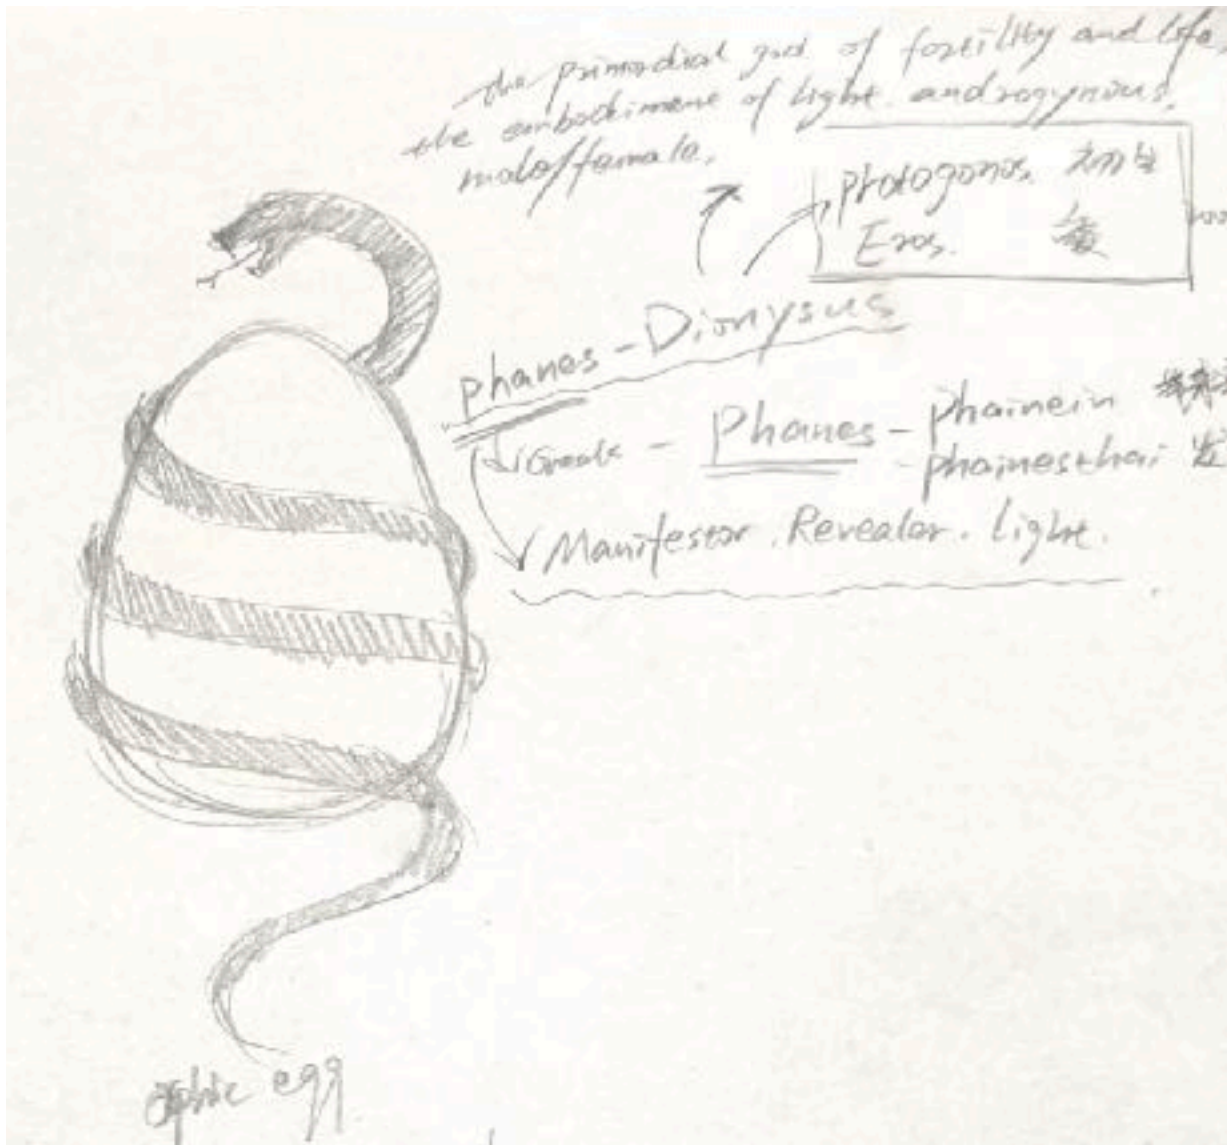 the primordial god of fertility and life,
the embodiment of light. androgynous,
male/female.
protogonos. 初生
Eros. 爱
phanes - Dionysus
Greek - Phanes - phainein
- phainesthai 发
Manifestor. Revealer. Light.
orphic egg